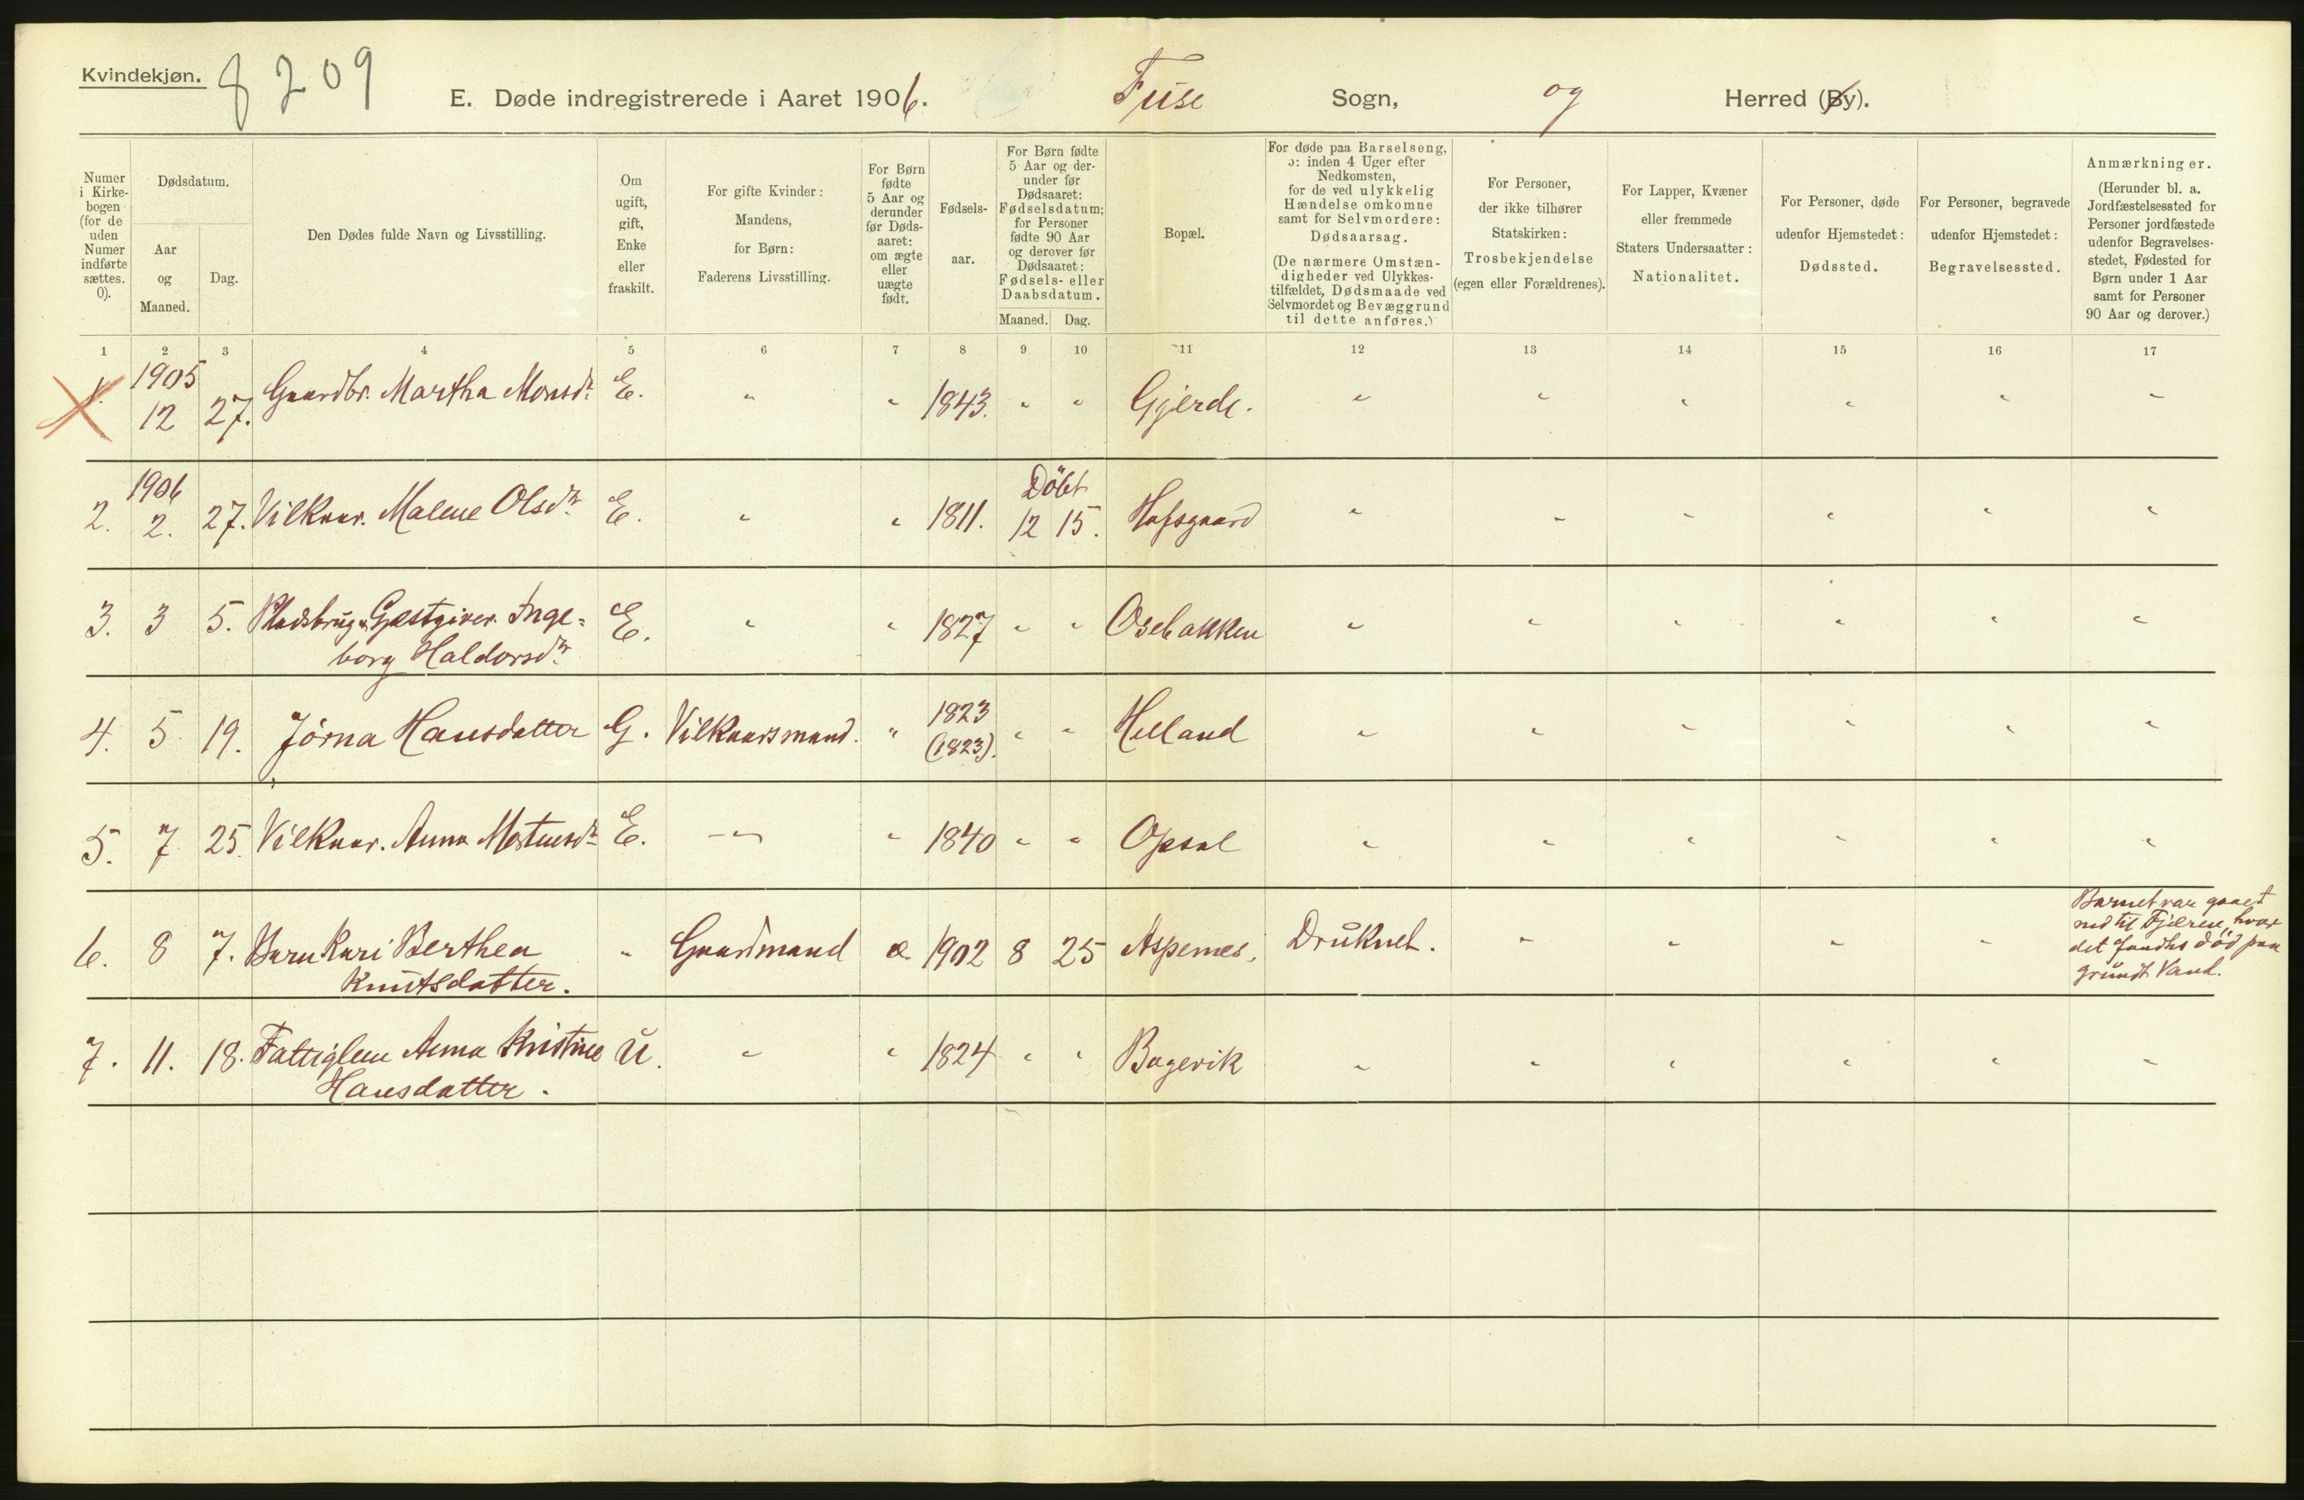 Kvindekjøn.
8 209
E. Døde indregistrerede i Aaret 1906. Fuse Sogn, og Herred (By).
Numer i Kirkebogen (for de uden Numer indførte sættes. 0).
Dødsdatum.
Aar og Maaned.
Dag.
Den Dødes fulde Navn og Livsstilling.
Om ugift, gift, Enke eller fraskilt.
For gifte Kvinder: Mandens, for Børn: Faderens Livsstilling.
For Børn fødte 5 Aar og derunder før Dødsaaret: om ægte eller uægte født.
Fødselsaar.
For Børn fødte 5 Aar og derunder før Dødsaaret: Fødselsdatum; for Personer fødte 90 Aar og derover før Dødsaaret: Fødsels- eller Daabsdatum.
Maaned. Dag.
Bopæl.
For døde paa Barselseng, ɔ: inden 4 Uger efter Nedkomsten, for de ved ulykkelig Hændelse omkomne samt for Selvmordere: Dødsaarsag.
(De nærmere Omstændigheder ved Ulykkestilfældet, Dødsmaade ved Selvmordet og Bevæggrund til dette anføres.)
For Personer, der ikke tilhører Statskirken: Trosbekjendelse (egen eller Forældrenes).
For Lapper, Kvæner eller fremmede Staters Undersaatter: Nationalitet.
For Personer, døde udenfor Hjemstedet: Dødssted.
For Personer, begravede udenfor Hjemstedet: Begravelsessted.
Anmærkninger.
(Herunder bl. a. Jordfæstelsessted for Personer jordfæstede udenfor Begravelsesstedet, Fødested for Børn under 1 Aar samt for Personer 90 Aar og derover.)
1 2 3 4 5 6 7 8 9 10 11 12 13 14 15 16 17
1. 1905 12 27. Gaardbr. Martha Monsdr. E. " " 1843. " " Gjerde. " " " " " "
2. 1906 2. 27. Vilkaar. Malene Olsdr. E. " " 1811. Döbt 12 15. Hafsgaard " " " " " "
3. 3 5. Pladsbrug. & Gæstgiver. Inge=
borg Haldorsdr. E. " " 1827 " " Osebakken " " " " " "
4. 5 19. Jórna Hansdatter G. Vilkaarsmand. " 1823 (1823). " " Helland " " " " " "
5. 7 25. Vilkaar. Anna E. " " 1840 " " Opsal " " " " " "
6. 8 7. Barn Kari Berthea
Knutsdatter. " Gaardmand æ 1902 8 25 Aspenes. Druknet. " " " " Barnet var gaaet
ned til Fjæren, hvor
det fandtes død paa
grundt Vand.
7. 11. 18. Fattiglem Anna Kristine
Hansdatter. U. " " 1824 " " Bogevik " " " " " "